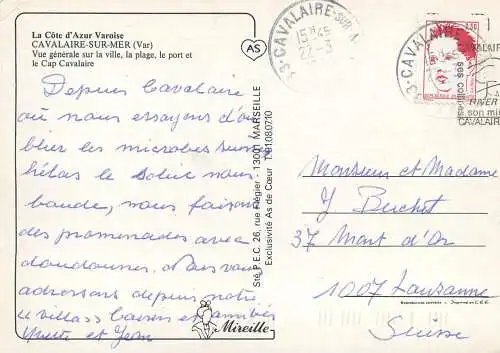 La Côte d'Azur Varoise
CAVALAIRE-SUR-MER (Var)
Vue générale sur la ville, la plage, le port et
le Cap Cavalaire
AS
Depuis Cavalaire
où nous essayons d'ou
blier les microbes
hélas le soleil nous
boude, nous faisons
des promenades avec
doudounes. Nous vous
adressons depuis notre
villa baisers et amitiés
Yvette et Jean
Mireille
Sté P.E.C. 26, rue Flégier - 13001 MARSEILLE
Exclusivité As de Cœur
83-CAVALAIRE-SUR-M
15H45
22-3
83-CAVALAIRE
CAVALAIRE
ses collines
HIVER
son mi
CAVALAIRE
Monsieur et Madame
J Berchet
37 Mont d'Or
1007 Lausanne
Suisse